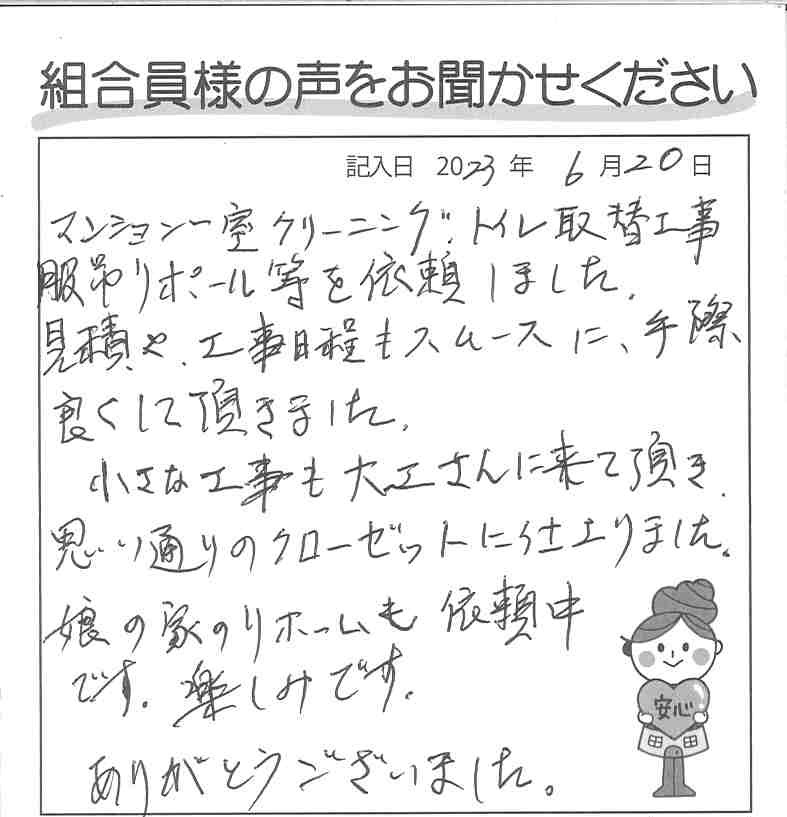 組合員様の声をお聞かせください
記入日 2023年 6月20日
マンション一室クリーニング.トイレ取替工事
服吊りポール等を依頼しました.
見積や、工事日程もスムースに、手際
良くして頂きました.
小さな工事も大工さんに来て頂き.
思い通りのクローゼットに仕上りました.
娘の家のリホームも依頼中
です.楽しみです.
ありがとうございました。
安心